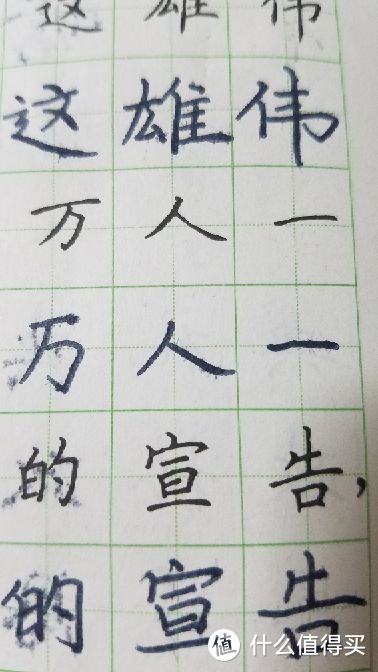 这雄伟
这雄伟
万人一
万人一
的宣告，
的宣告
值 什么值得买